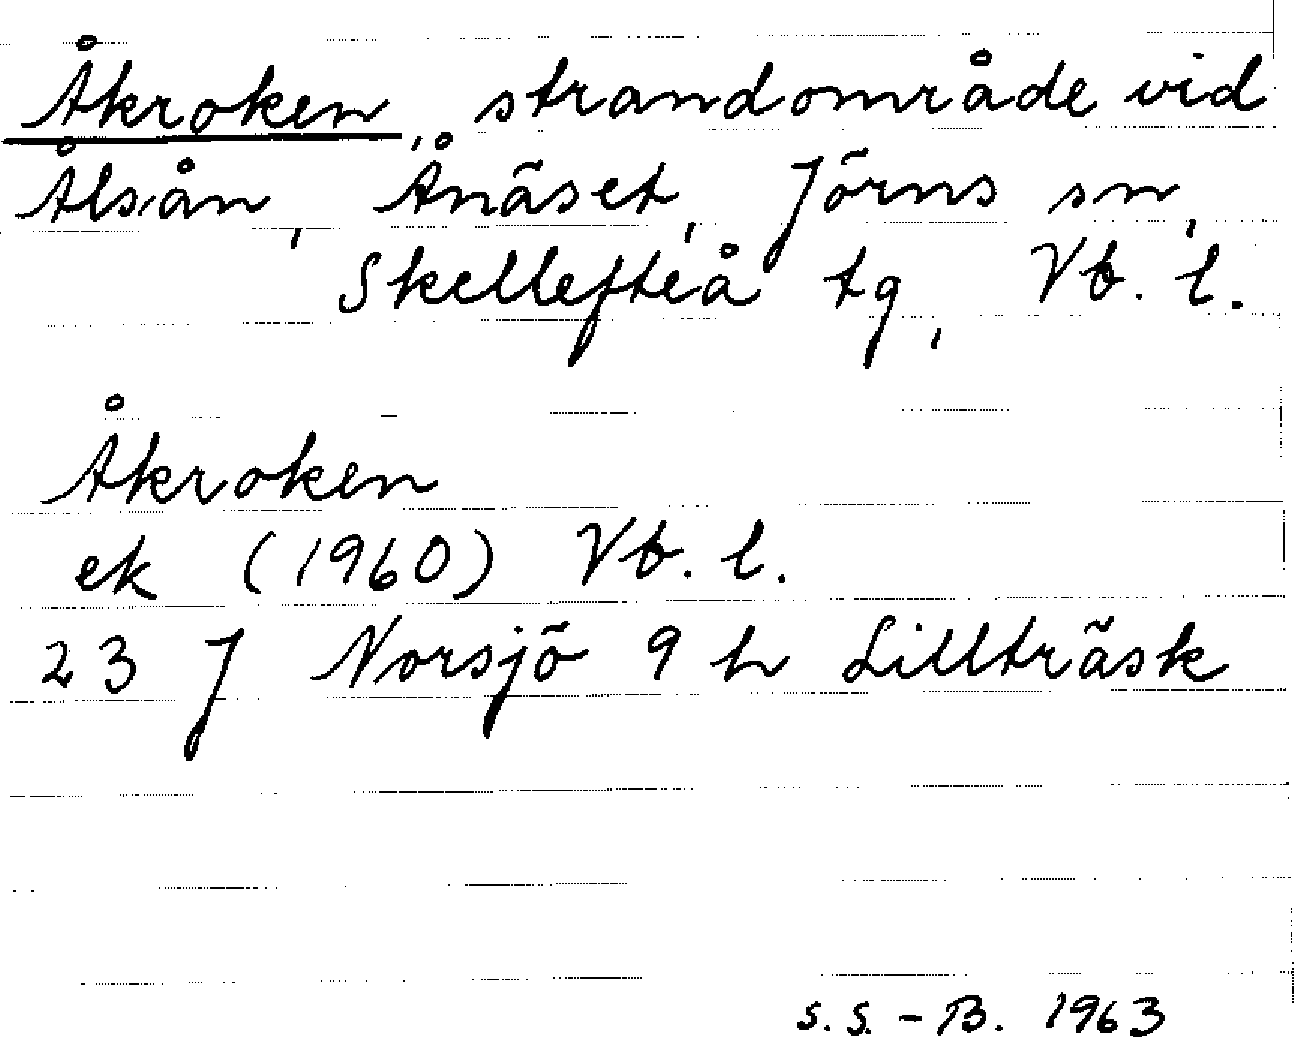 Åkroken, strandområde vid
Ålsån, Ånäset, Jörns sn,
Skellefteå tg, Vb. l.
Åkroken
ek (1960) Vb. l.
23 J Norsjö 9 h Lillträsk
S. S. - B. 1963